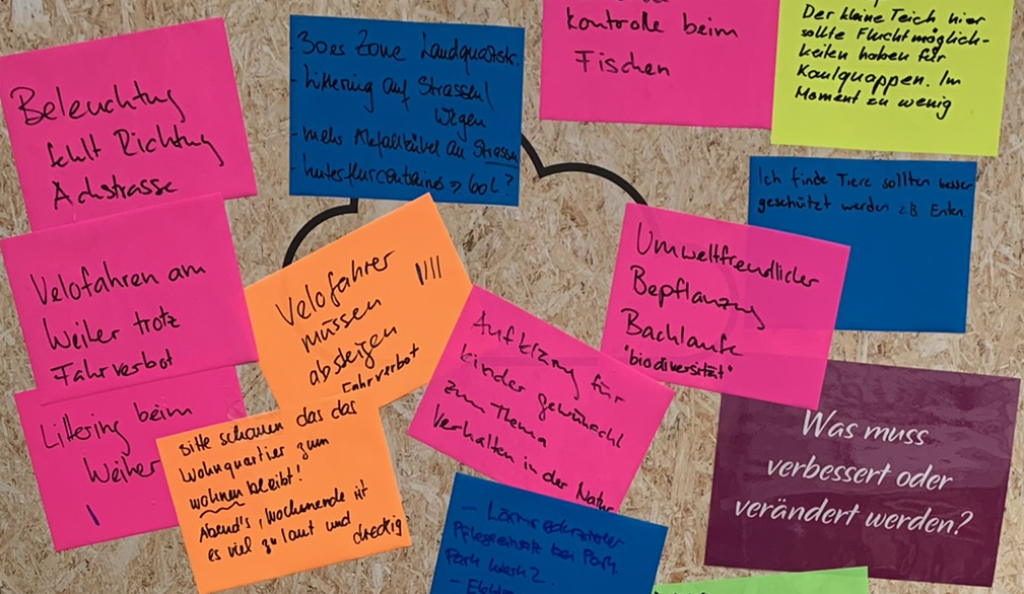 Beleuchtung
fehlt Richtung
Achstrasse
30er Zone Landquartstr.
- Littering auf Strassen/
Wegen
- mehr Abfallkübel an Strassen
- Unterflurcontainer => 60L?
kontrolle beim
Fischen
Der kleine Teich hier
sollte Fluchtmöglich-
keiten haben für
Kaulquappen. Im
Moment zu wenig
Ich finde Tiere sollten besser
geschützt werden zB Enten.
Velofahren am
Weiher trotz
Fahrverbot
Velofahrer
müssen
absteigen
Fahrverbot
Umweltfreundlicher
Bepflanzung
Bachlaufe
"biodiversität"
Aufklärung für
kinder gewünscht
zum Thema
Verhalten in der Natur
Littering beim
Weiher
Bitte schauen das das
Wohnquartier zum
wohnen bleibt!
Abend's, Wochenende ist
es viel zu laut und dreckig
Was muss
verbessert oder
verändert werden?
- Lärmreduzierter
Pflegeeinsatz bei Park